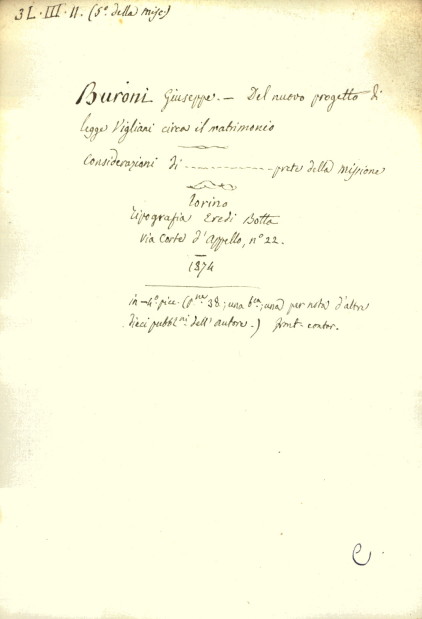 3 L. III. 11. (5º. della misc)
Buroni Giuseppe. — Del nuovo progetto di
legge Vigliani circa il matrimonio
Considerazioni di ------------ prete della missione
Torino
Tipografia Eredi Botta
via Corte d'Appello, nº 22.
1874
in-4º. picc. (p.ne 38; una b.ca; una per nota d'altre
dieci pubbl.ni dell'autore.) front. contor.